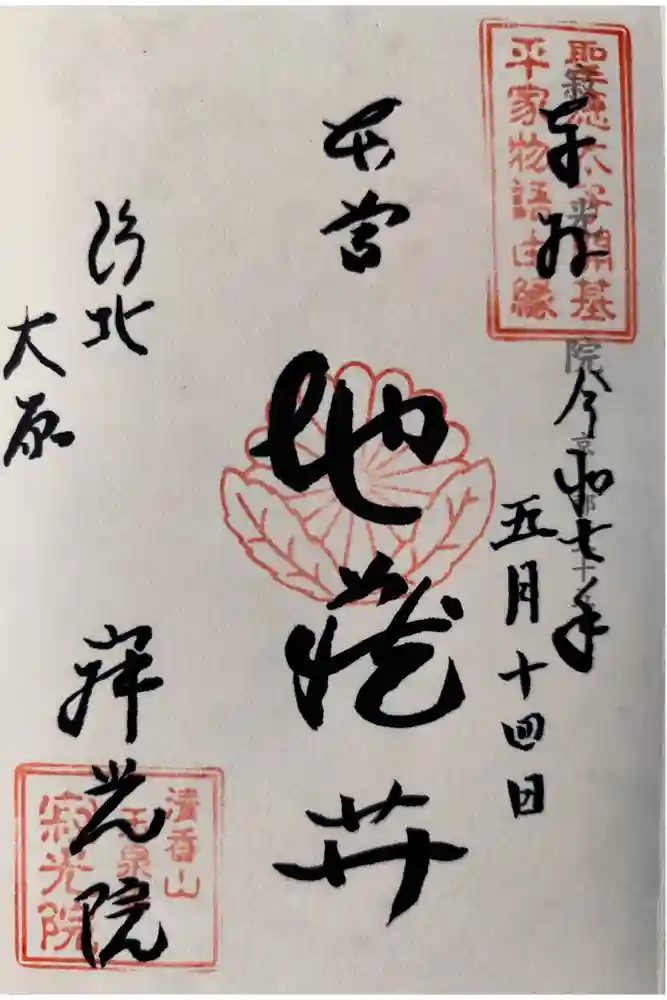 聖徳太子開基
平家物語由縁
奉拝
令和七年
五月十四日
本尊
地蔵廾
洛北
大原
寂光院
清香山
玉泉
寂光院